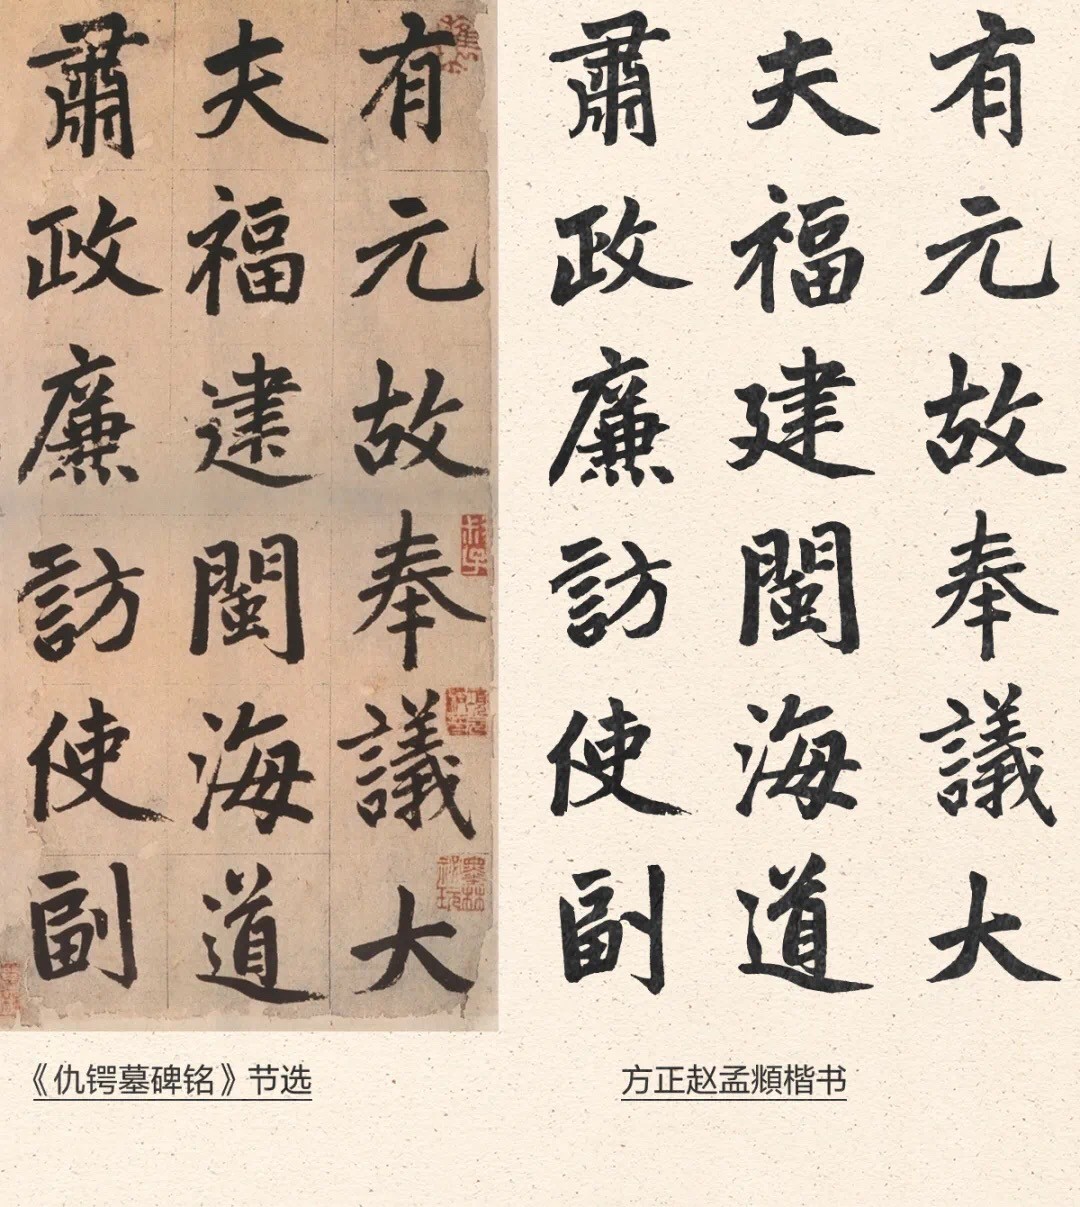 有元故奉議大
夫福建閩海道
肅政廉訪使副
有元故奉議大
夫福建閩海道
肅政廉訪使副
《仇锷墓碑铭》节选
方正赵孟頫楷书